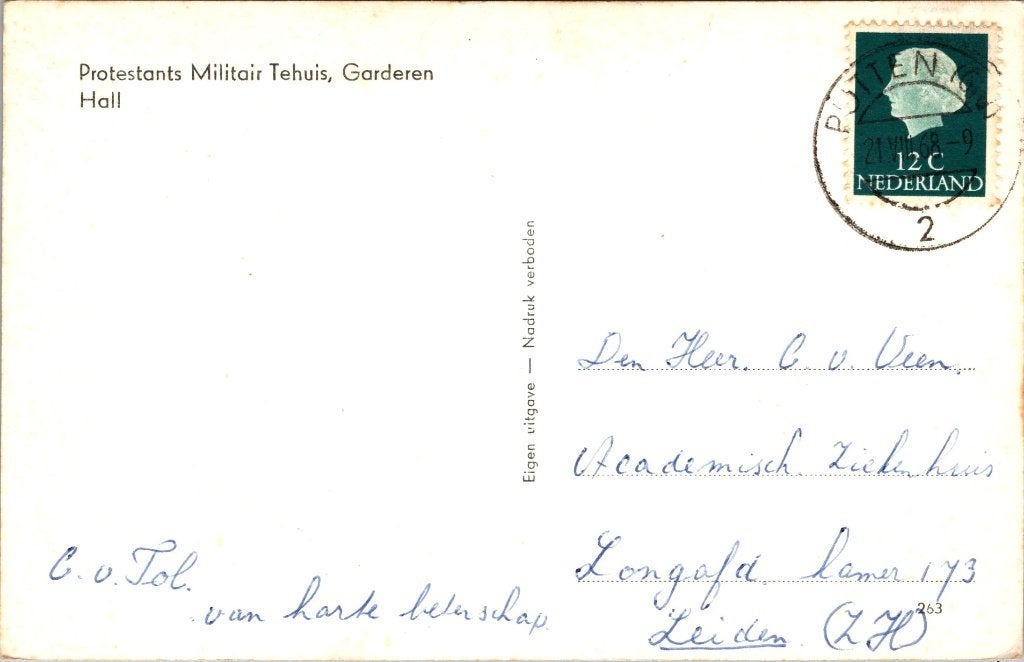 Protestants Militair Tehuis, Garderen
Hall
PUTTEN (GLD)
21 VIII 68 - 9
2
12 C
NEDERLAND
Eigen uitgave — Nadruk verboden
Den Heer. C. v. Veen.
Academisch. Ziekenhuis
Longafd. kamer 173
Leiden. (ZH)
263
C. v. Tol.
van harte beterschap.